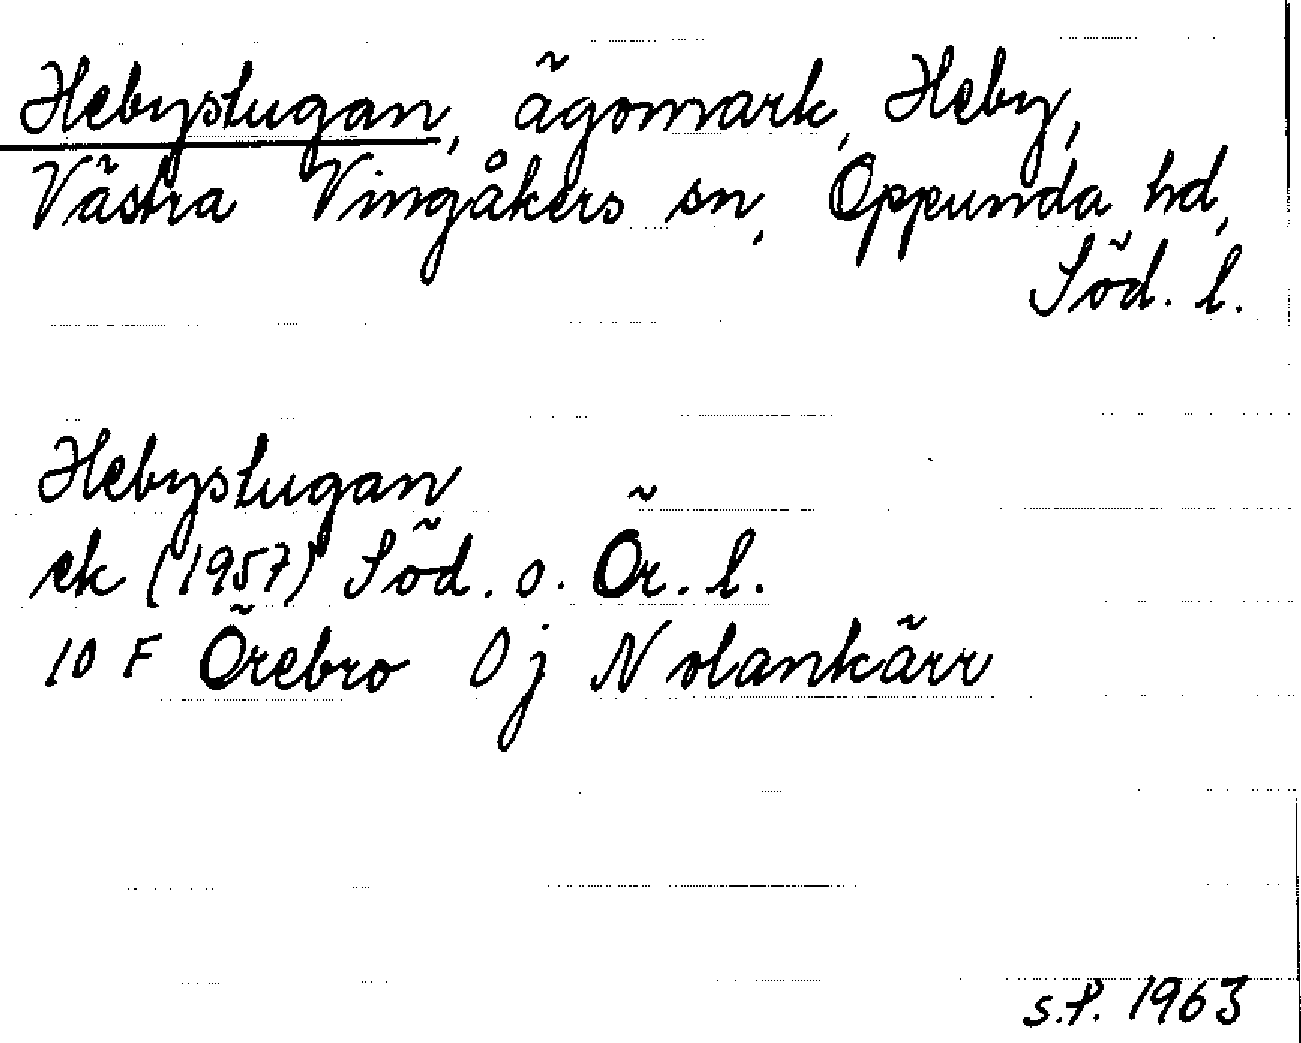 Hebystugan, ägomark, Heby,
Västra Vingåkers sn, Oppunda hd,
Söd. l.
Hebystugan
ek (1957) Söd. o. Ör. l.
10 F Örebro 0j N olankärr
s.P. 1963